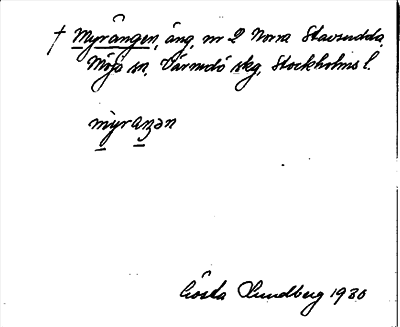 † Myrängen, äng, nr 2 Norra Stavsudda,
Möja sn, Värmdö skg, Stockholms l.
myraŋən
Gösta Lundberg 1930